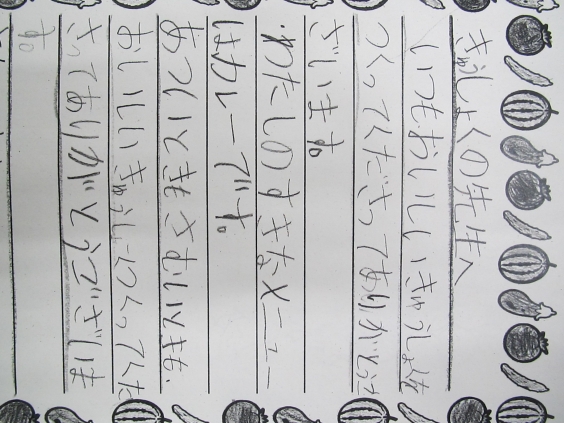 きゅうしょくの先生へ
いつもおいしいきゅうしょくを
つくってくださってありがとうご
ざいます。
わたしのすきなメニュー
はカレーです。
あついときもさむいときも、
おいしいきゅうしょくつくってくだ
さってありがとうございま
す。